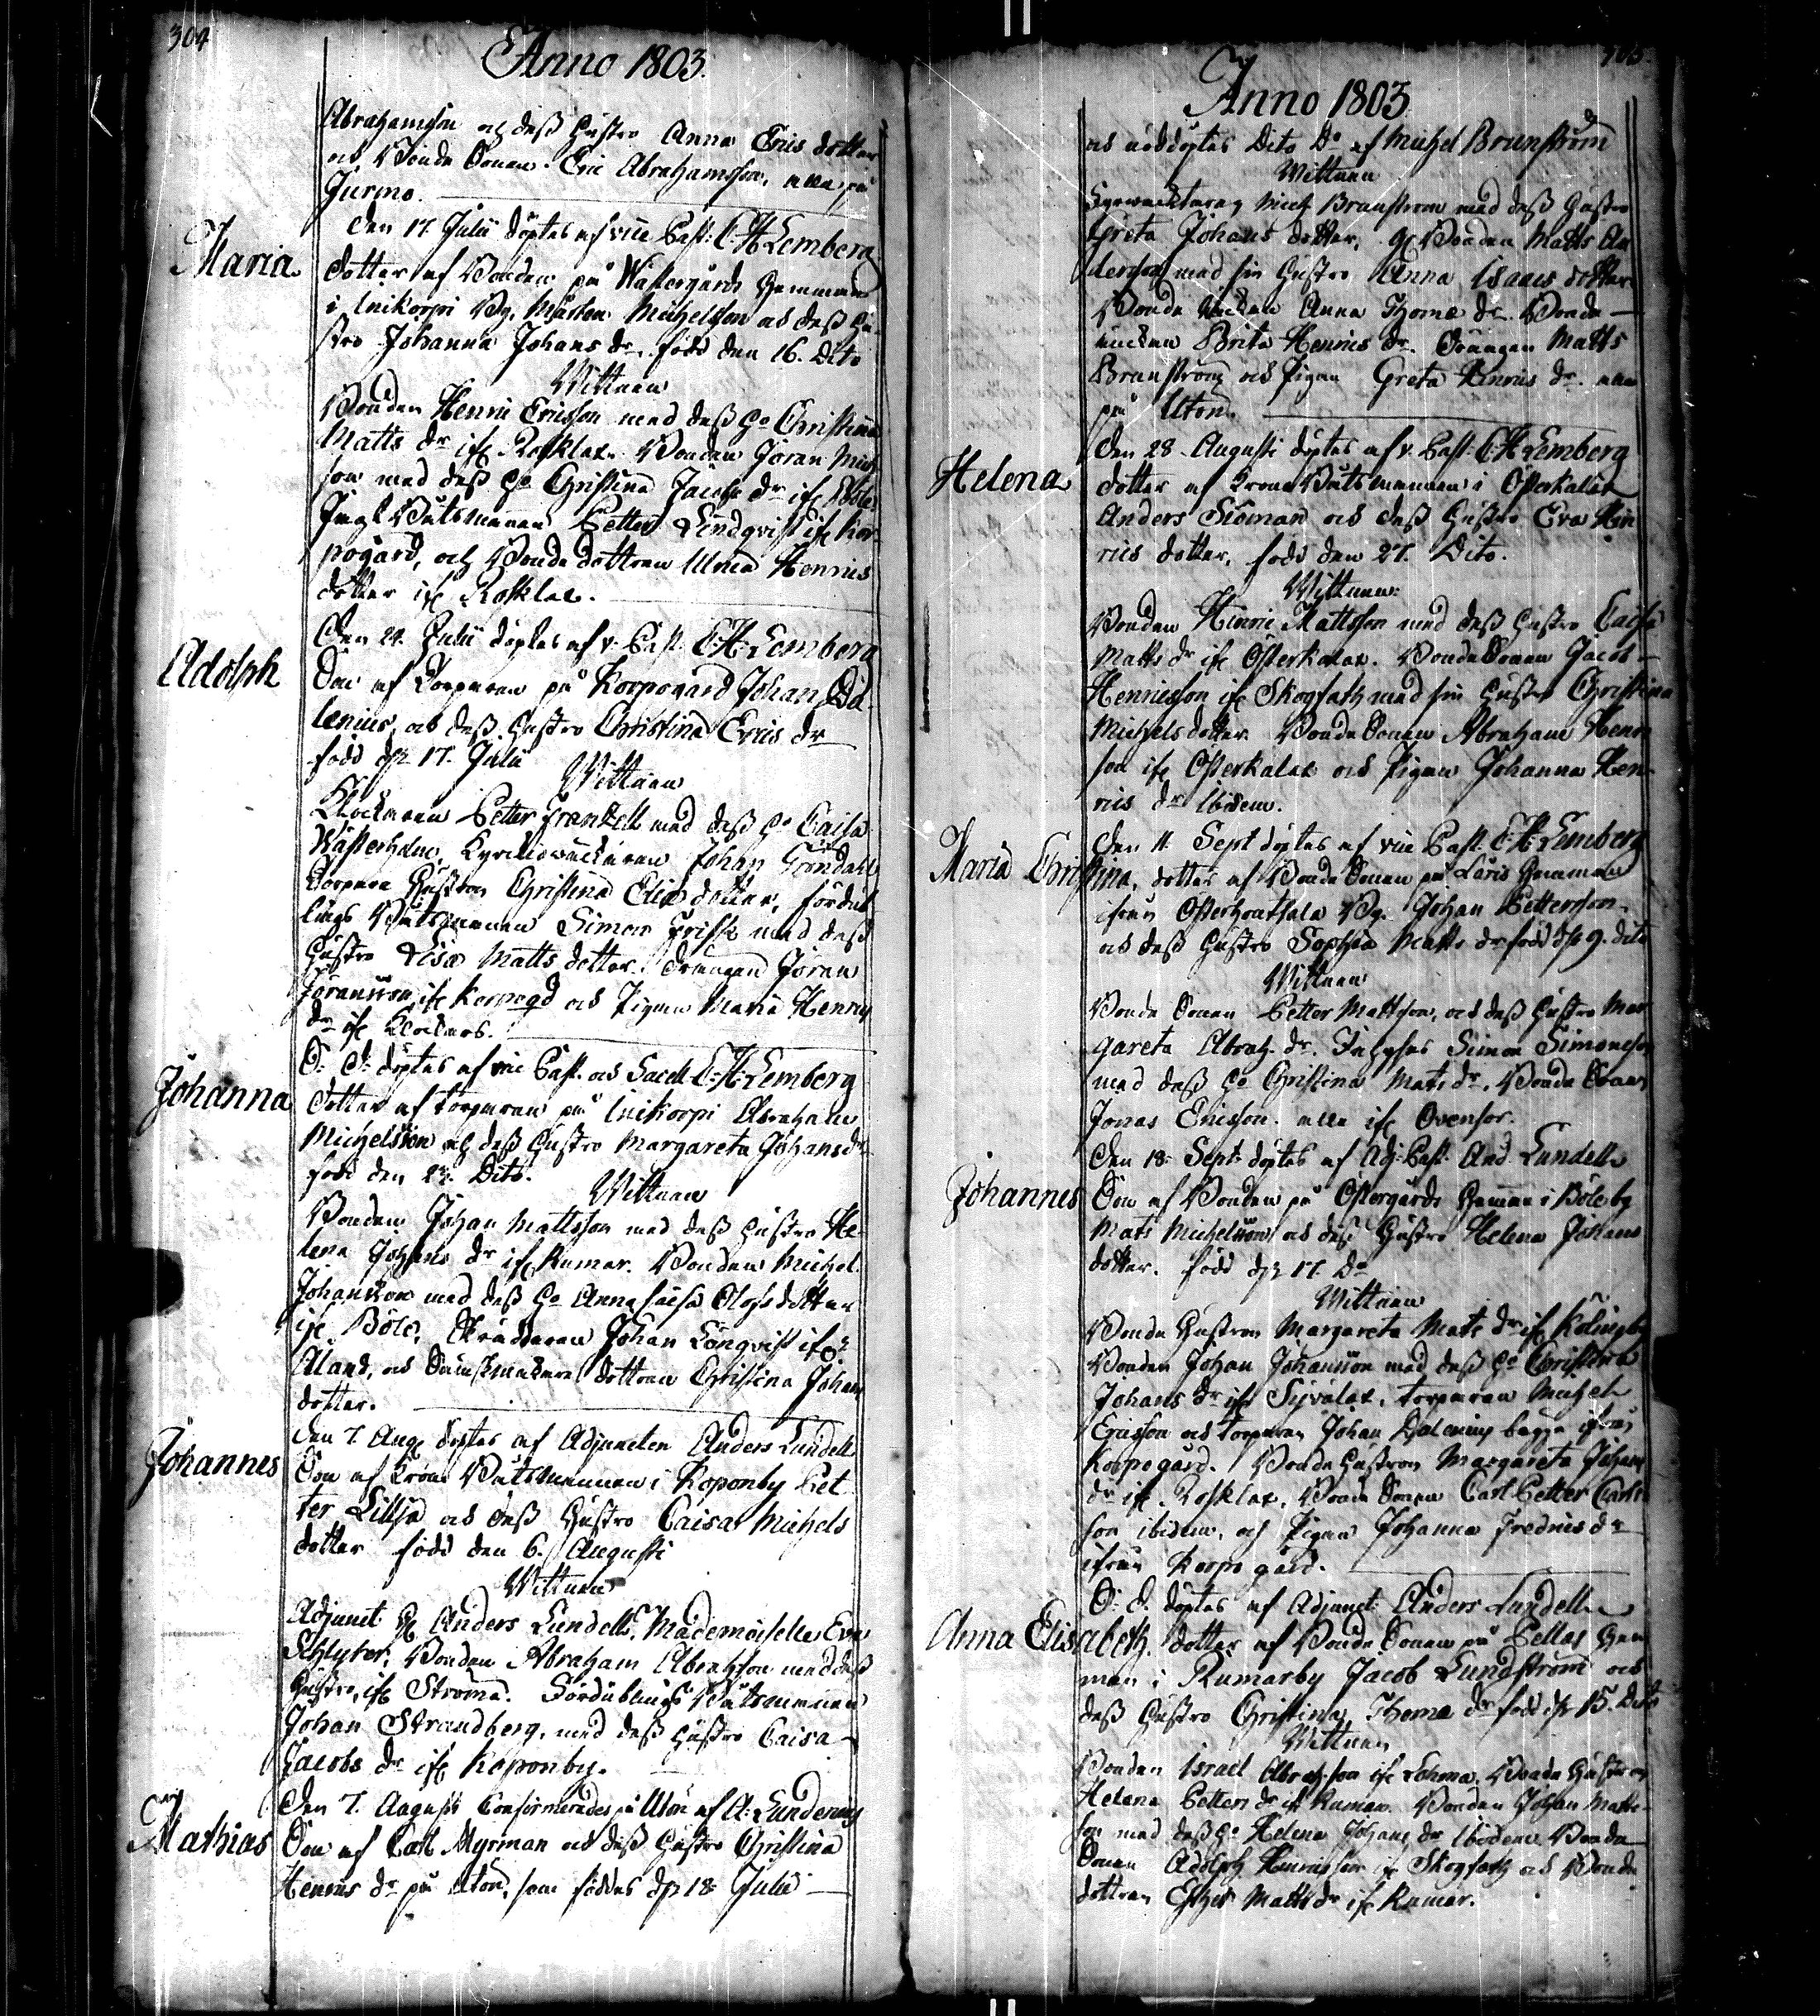 304
Anno 1803.
Abrahamsson och dess Hustru Anna Erics dotter
och Bonde Sonen Eric Abrahamsson, alla på
Jurmo.
Maria
Den 17. Julii döptes af vice Past: C.H. Lemberg
dotter af Bonden på Wästergårds Hemman
i Inikorpi By, Mårten Michelsson och dess Hu
stru Johanna Johans dr. född den 16. Dito
Wittnen
Bonden Henric Ericsson med dess H. Christina
Matts dr ifr. Rosklax. Bonden Jöran Mich
son med dess H. Christina Jacobs dr ifr. Böle,
Båtsmannen Petter Lindqvist ifr. Kor-
pogård, och Bonde dottren Ulrica Henrics
dotter ifr. Rosklax.
Adolph
Den 24. Julii döptes af v. Past. C.H. Lemberg
Son af Torparen på Korpogård Johan Da
lenius, och dess Hustru Christina Erics dr
född d. 17. Julii
Wittnen
Klockaren Petter Frantzell med dess H. Caisa
Wästerholm, Johan Gröndahl
Torpare Hustrun Christina Elias dotter, fördub
lings Båtsmannen Simon Frisk med dess
Hustru Lisa Matts dotter. Drängen Jöran
Jöransson, ifr. Korpogd och Pigan Maria Henrics
dr ifr. Klockars.
Johanna
D. D. döptes af vice Past. och Sacell. C.H. Lemberg
dotter af torparen på Inikorpi Abraham
Michelsson och dess Hustru Margareta Johans dr
född den 23. Dito.
Wittnen
Bonden Johan Mattsson med dess Hustru He-
lena Johans dr ifr. Rumar. Bonden Michel
Johansson med dess H. Anna Caisa Olofs dotter
ifr. Böle, Skräddaren Johan Lönqvist ifr.
Åland, och dottren Christina Johans
dotter.
Johannes
Den 7. Aug. döptes af Adjuncten Anders Lundell
Son af Krono Båtsmannen i Koponby Pet
ter Lillja och dess Hustru Caisa Michels
dotter född den 6. Augusti
Wittnen
Adjunct Anders Lundell, Mademoiselle Eva
Schlyter, Bonden Abraham Abrahsson med dess
Hustru, ifr. Strömma. Fördublings Båtsmannen
Johan Strandberg, med dess Hustru Caisa
Jacobs dr ifr. Koponby.
Mathias
Den 7. Augusti Confirmerades på Utön af A. Lundenius
Son af Carl Myrman och dess Hustru Christina
Henrics dr på Utön, som föddes d. 18 Julii
305
Anno 1803
och nöddöptes Dito Do af Michel Brunström
Wittnen
Mich. Brunström med dess Hustru
Greta Johans dotter, Bonden Matts An
dersson med sin Hustru Anna Isaacs dotter
Bonde Anna Thoma dr. Bonde
Brita Henrics dr. Drängen Matts
Brunström och Pigan Greta Henrics dr. alla
på Utön.
Helena
Den 28. Augusti döptes af v. Past. C.H. Lemberg
dotter af Krono Båtsmannen i Österkalax
Anders Sjöman och dess Hustru Eva Hin
rics dotter, född den 27. Dito.
Wittnen
Bonden Hinric Mattsson med dess Hustru Caisa
Matts dr ifr. Österkalax. Bonde Sonen Jacob
Henricsson ifr. Skogfath med sin Hustru Christina
Michels dotter. Bonde Sonen Abraham Henrs
son ifr. Österkalax och Pigan Johanna Hen
rics dr Ibidem.
Maria Christina,
Den 11. Sept döptes af vice Past. C.H. Lemberg
dotter af Bonde Sonen på Laris Hemman
ifrån Österhontsala By. Johan Pettersson
och dess Hustru Sophia Matts dr född d. 9. dito
Wittnen
Bonde Sonen Petter Mattsson, och dess Hustru Mar
gareta Abrah. dr. Inhyses Simon Simonsson
med dess H. Christina Mats dr. Bonde Sonen
Jonas Ericsson. alla ifr. Ovensor.
Johannes
Den 18. Sept. döptes af Adj. Past. And. Lundell
Son af Bonden på Östergårds Hemman i Böle by
Mats Michelsson och dess Hustru Helena Johans
dotter. född d. 17. Do
Wittnen
Bonde Hustrun Margareta Mats dr ifr. Kälingby
Bonden Johan Johansson med dess H. Christina
Johans dr ifr. Syvälax, torparen Michel
Ericsson och torparen Johan Dalenius begge ifrån
Korpogård. Bonde Hustrun Margareta Johans
dr ifr. Rosklax. Bonde Sonen Carl Petter Carls
son ibidem, och Pigan Johanna Fredrics dr
ifrån Korpo gård.
Anna Elisabeth.
D. d. döptes af Adjunct: Anders Lundell
dotter af Bonde Sonen på Pellas Hem
man i Rumarby Jacob Lundström och
dess Hustru Christina Thoma dr född d. 15. Dito
Wittnen
Bonden Israel Abrah.son ifr. Lohma. Bonde Hustrun
Helena Petters dr ifr. Rumar. Bonden Johan Matts-
son med dess H. Helena Johans dr Ibidem Bonde
Sonen Adolph Henricsson ifr. Skogfath och Bonde
dottren Esther Matts dr ifr. Rumar.